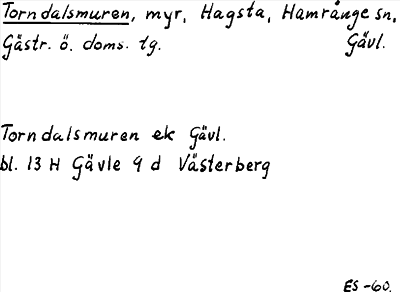 Torndalsmuren, myr, Hagsta, Hamrånge sn,
Gästr. ö. doms. tg. Gävl.
Torndalsmuren ek Gävl.
bl. 13 H Gävle 9 d Västerberg
ES -60.